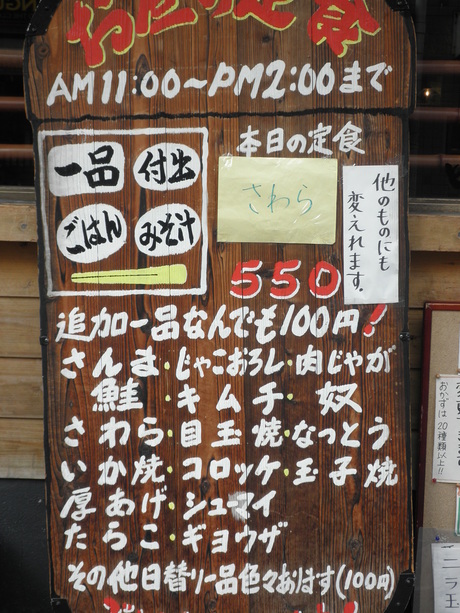 お昼の定食
AM11:00〜PM2:00まで
一品 付出
ごはん みそ汁
本日の定食
さわら
他のものにも
変えれます。
550
追加一品なんでも100円!
さんま・じゃこおろし・肉じゃが
鮭・キムチ・奴
さわら・目玉焼・なっとう
いか焼・コロッケ・玉子焼
厚あげ・シュマイ
たらこ・ギョウザ
その他日替り一品色々あります(100円)
おかずは20種類以上!!
ニラ玉